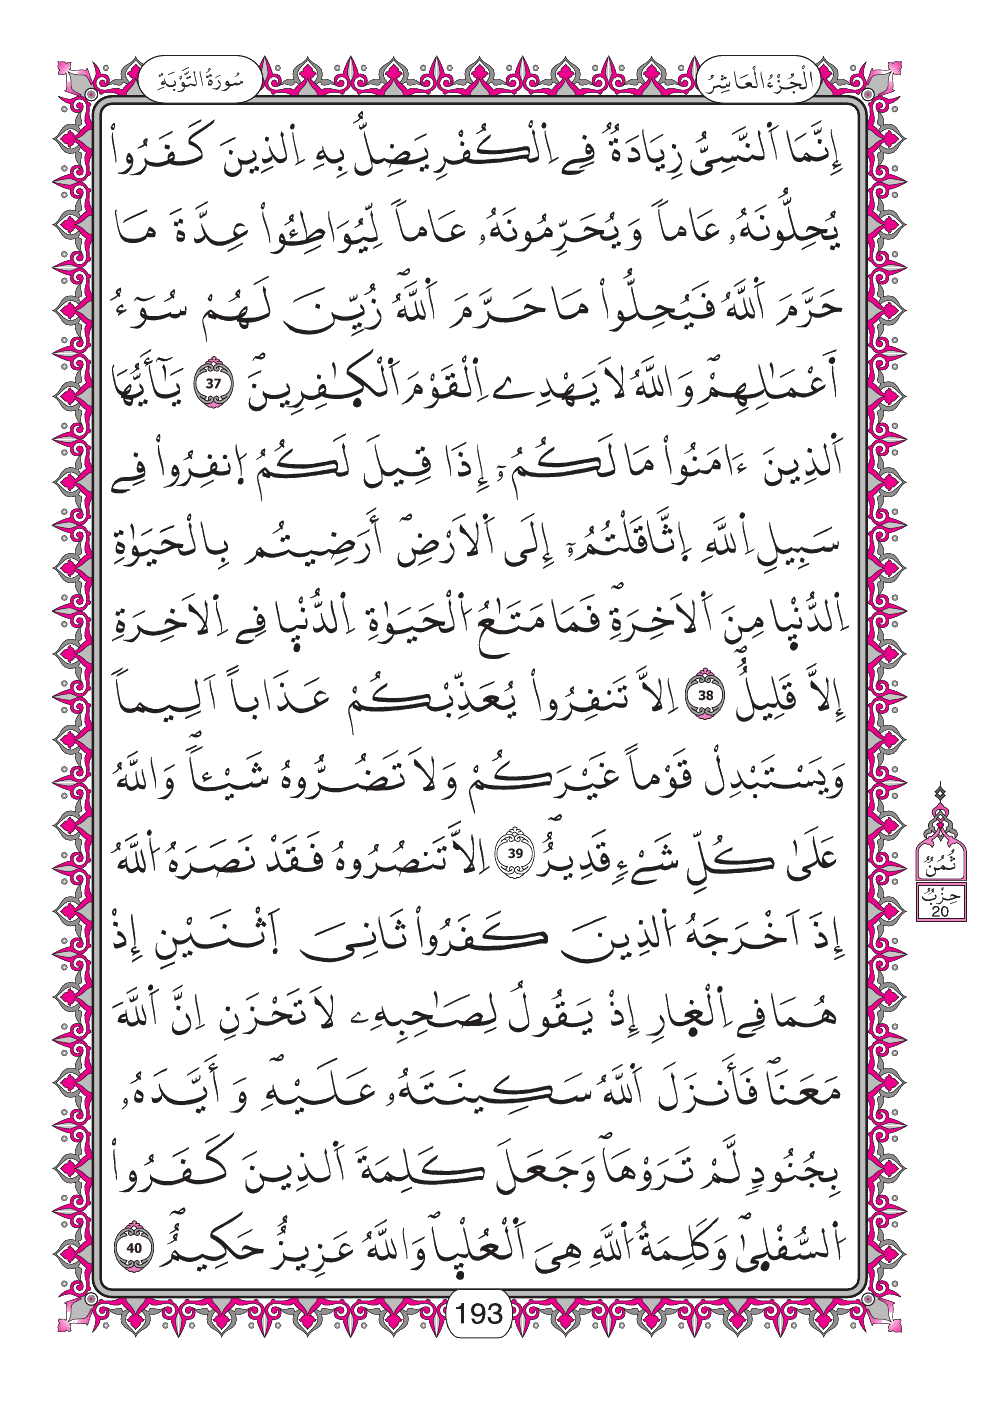 سُورَةُ التَّوْبَةِ
الْجُزْءُ الْعَاشِرُ
إِنَّمَا اَ۬لنَّسِيُّ زِيَادَةٞ فِے اِ۬لْكُفْرِ يَضِلُّ بِهِ اِ۬لذِينَ كَفَرُواْ
يُحِلُّونَهُۥ عَاماٗ وَيُحَرِّمُونَهُۥ عَاماٗ لِّيُوَاطِـُٔواْ عِدَّةَ مَا
حَرَّمَ اَ۬للَّهُ فَيُحِلُّواْ مَا حَرَّمَ اَ۬للَّهُۖ زُيِّنَ لَهُمْ سُوٓءُ
أَعْمَٰلِهِمْۖ وَاللَّهُ لَا يَهْدِے اِ۬لْقَوْمَ اَ۬لْكٰ۪فِرِينَۖ 37 يَٰٓأَيُّهَا
اَ۬لذِينَ ءَامَنُواْ مَا لَكُمُۥٓ إِذَا قِيلَ لَكُمُ اُ۪نفِرُواْ فِے
سَبِيلِ اِ۬للَّهِ اِ۪ثَّاقَلْتُمُۥٓ إِلَى اَ۬لَارْضِۖ أَرَضِيتُم بِالْحَيَوٰةِ
اِ۬لدُّنْي۪ا مِنَ اَ۬لَاخِرَةِۖ فَمَا مَتَٰعُ اُ۬لْحَيَوٰةِ اِ۬لدُّنْي۪ا فِے اِ۬لَاخِرَةِ
إِلَّا قَلِيلٌۖ 38 اِلَّا تَنفِرُواْ يُعَذِّبْكُمْ عَذَاباً اَلِيماٗ
وَيَسْتَبْدِلْ قَوْماً غَيْرَكُمْ وَلَا تَضُرُّوهُ شَيْـٔاٗۖ وَاللَّهُ
عَلَىٰ كُلِّ شَےْءٖ قَدِيرٌۖ 39 اِلَّا تَنصُرُوهُ فَقَدْ نَصَرَهُ اُ۬للَّهُ
إِذَ اَخْرَجَهُ اُ۬لذِينَ كَفَرُواْ ثَانِيَ اَ۪ثْنَيْنِ إِذْ
هُمَا فِے اِ۬لْغ۪ارِ إِذْ يَقُولُ لِصَٰحِبِهِۦ لَا تَحْزَنِ اِنَّ اَ۬للَّهَ
مَعَنَاۖ فَأَنزَلَ اَ۬للَّهُ سَكِينَتَهُۥ عَلَيْهِۖ وَأَيَّدَهُۥ
بِجُنُودٖ لَّمْ تَرَوْهَاۖ وَجَعَلَ كَلِمَةَ اَ۬لذِينَ كَفَرُواْ
اُ۬لسُّفْل۪ىٰۖ وَكَلِمَةُ اُ۬للَّهِ هِيَ اَ۬لْعُلْي۪اۖ وَاللَّهُ عَزِيزٌ حَكِيمٌۖ 40
ثُمُنٌ
حِزْبٌ
20
193